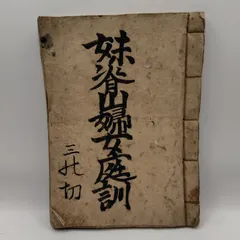 妹脊山婦女庭訓
三の切